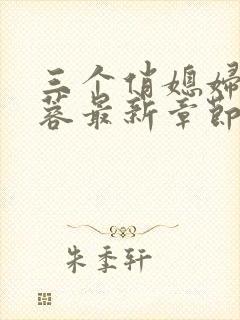 三个俏媳妇
蓉最新章节
朱季轩